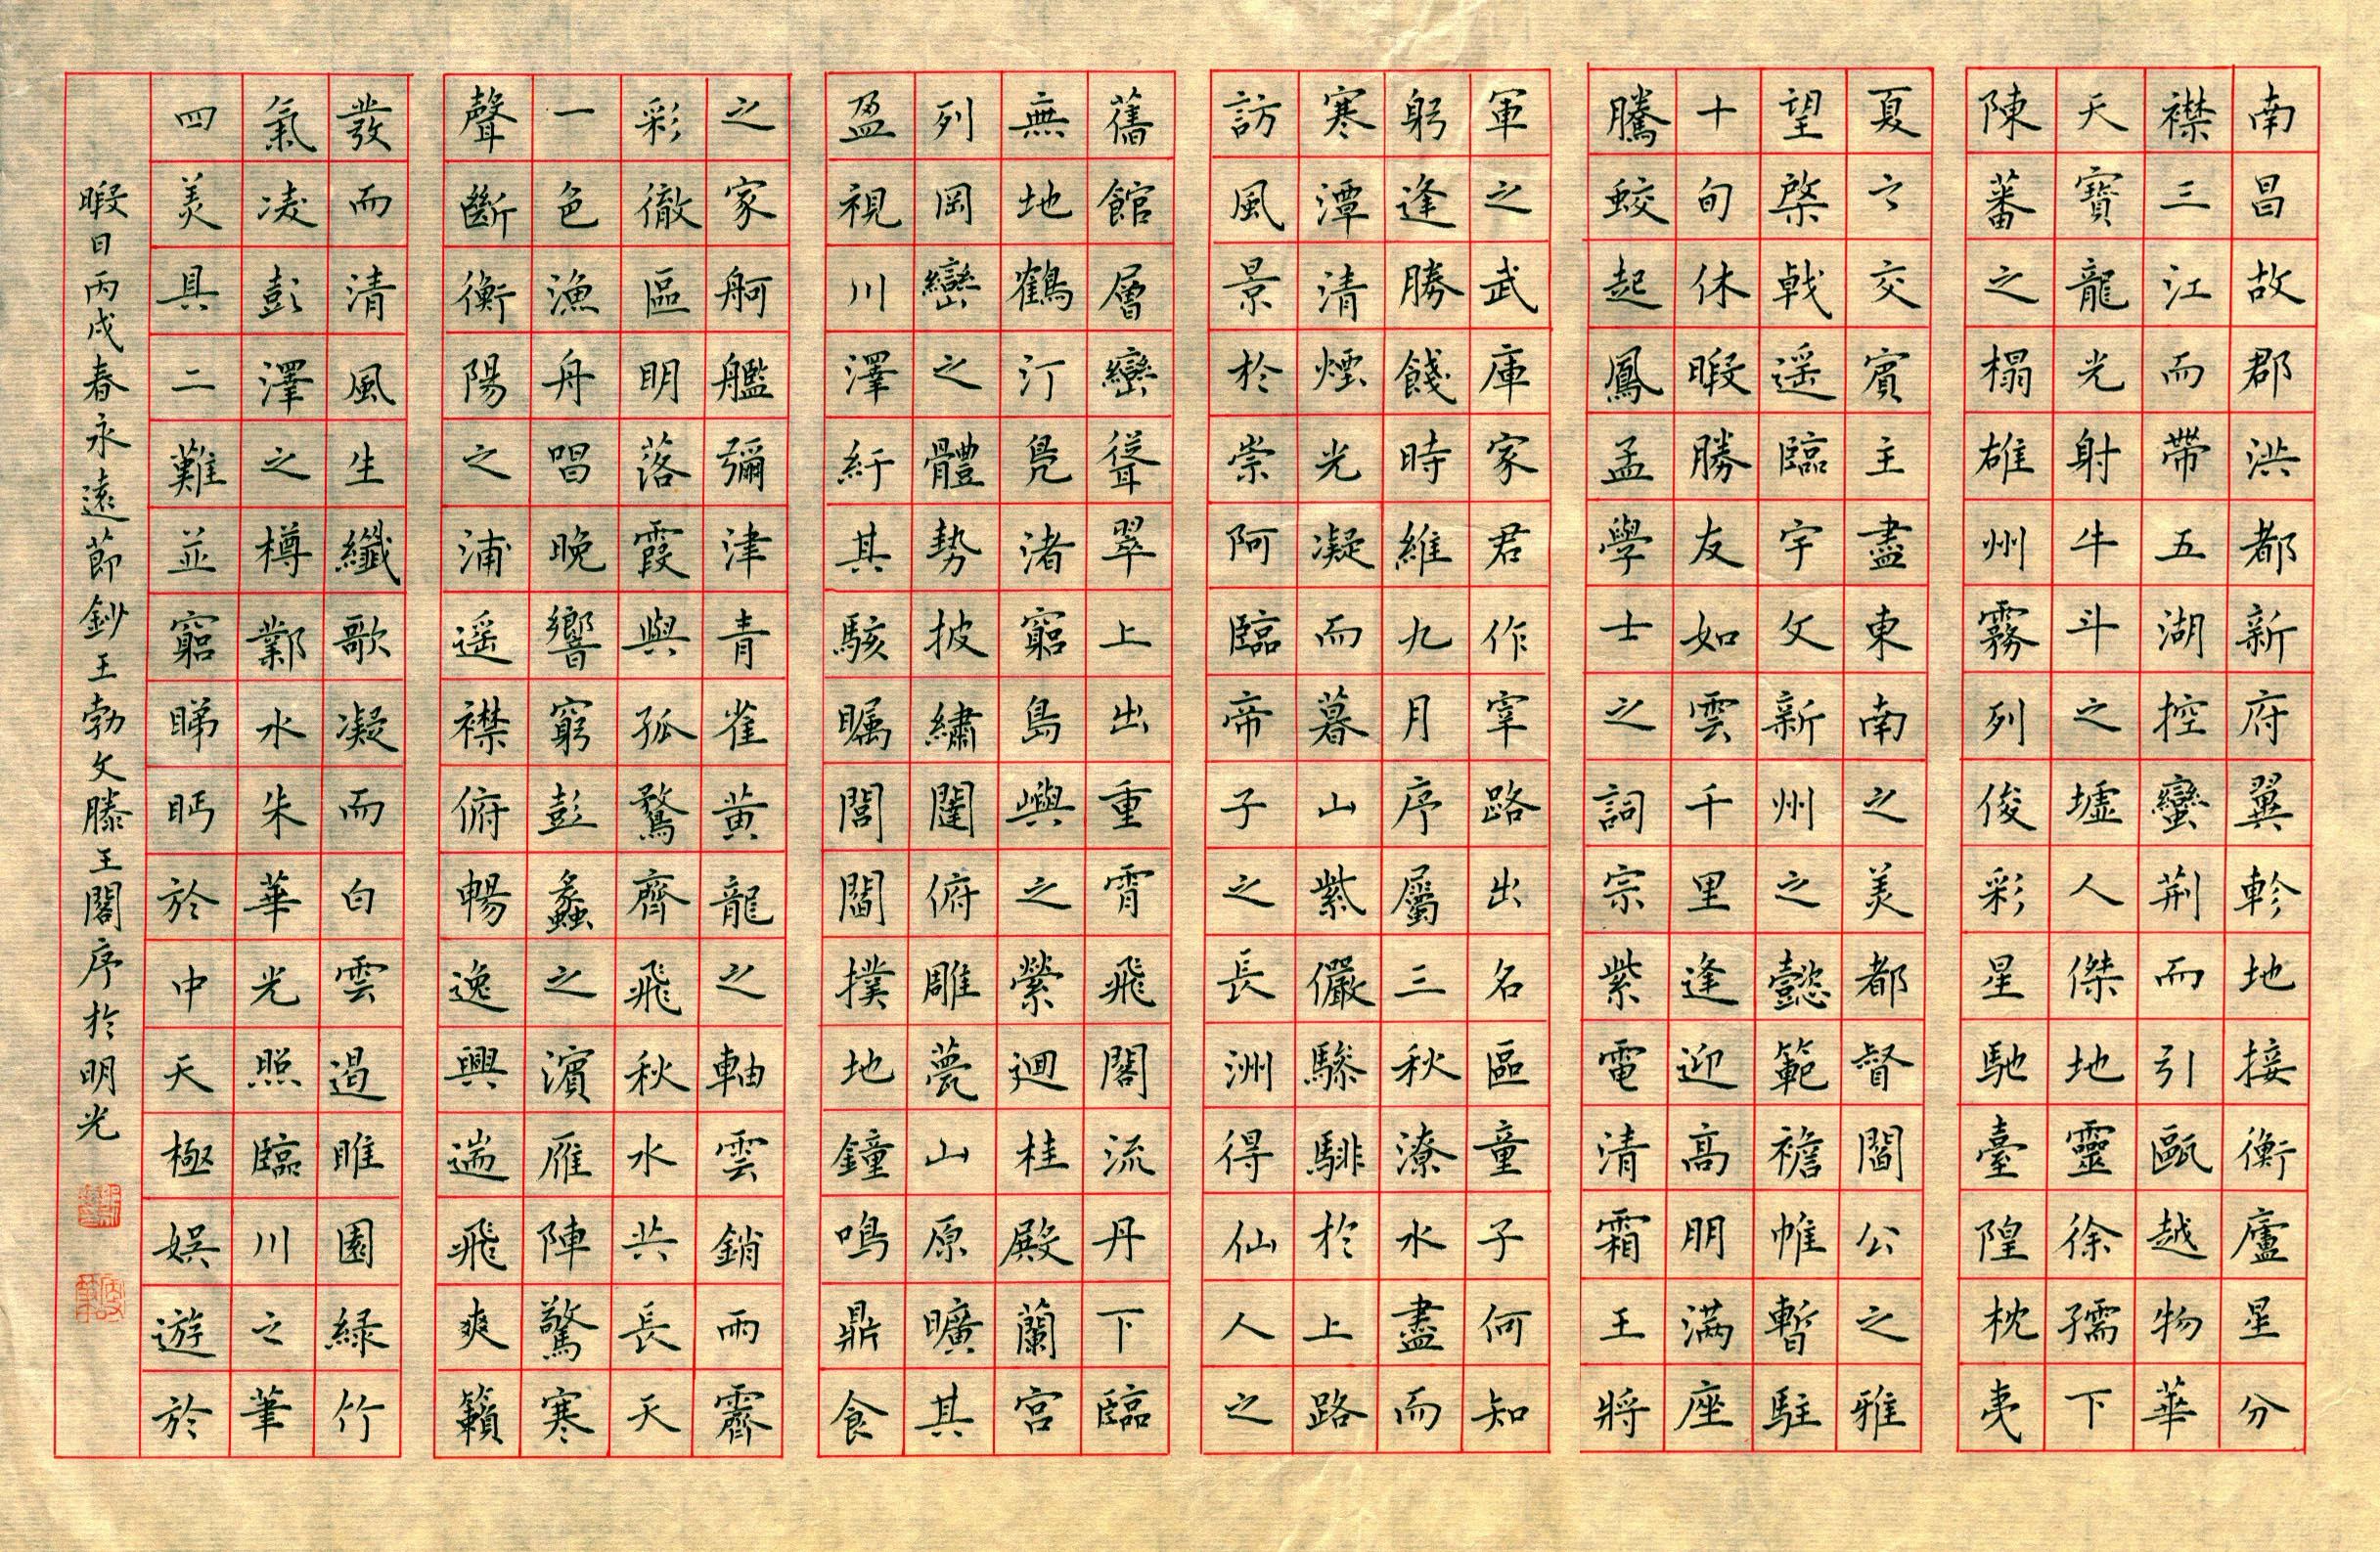 南昌故郡洪都新府翼軫地接衡廬星分
襟三江而帶五湖控蠻荆而引甌越物華
天寶龍光射牛斗之墟人傑地靈徐孺下
陳蕃之榻雄州霧列俊彩星馳臺隍枕夷
夏之交賓主盡東南之美都督閻公之雅
望棨戟遥臨宇文新州之懿範襜帷暫駐
十旬休暇勝友如雲千里逢迎高朋滿座
騰蛟起鳳孟學士之詞宗紫電清霜王將
軍之武庫家君作宰路出名區童子何知
躬逢勝餞時維九月序屬三秋潦水盡而
寒潭清煙光凝而暮山紫儼驂騑於上路
訪風景於崇阿臨帝子之長洲得仙人之
舊館層巒聳翠上出重霄飛閣流丹下臨
無地鶴汀鳧渚窮島嶼之縈迴桂殿蘭宮
列岡巒之體勢披繡闥俯雕甍山原曠其
盈視川澤紆其駭矚閭閻撲地鐘鳴鼎食
之家舸艦彌津青雀黄龍之軸雲銷雨霽
彩徹區明落霞與孤鶩齊飛秋水共長天
一色漁舟唱晚響窮彭蠡之濱雁陣驚寒
聲斷衡陽之浦遥襟俯暢逸興遄飛爽籟
發而清風生纖歌凝而白雲遏睢園緑竹
氣凌彭澤之樽鄴水朱華光照臨川之筆
四美具二難並窮睇眄於中天極娱遊於
暇日丙戌春永遠節鈔王勃文滕王閣序於明光